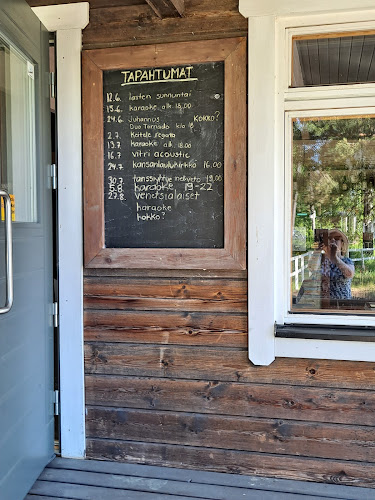 TAPAHTUMAT
12.6. lasten sunnuntai
15.6. karaoke alk. 18.00
24.6. Juhannus KOKKO?
Duo Tornado klo 18
2.7. Keitele regatta
13.7. karaoke alk. 18.00
16.7. vitri acoustic
24.7. kansanlaulukirkko 16.00
30.7. tanssiyhtye neliveto 19.00
5.8. karaoke 19-22
27.8. venetsialaiset
karaoke
kokko?